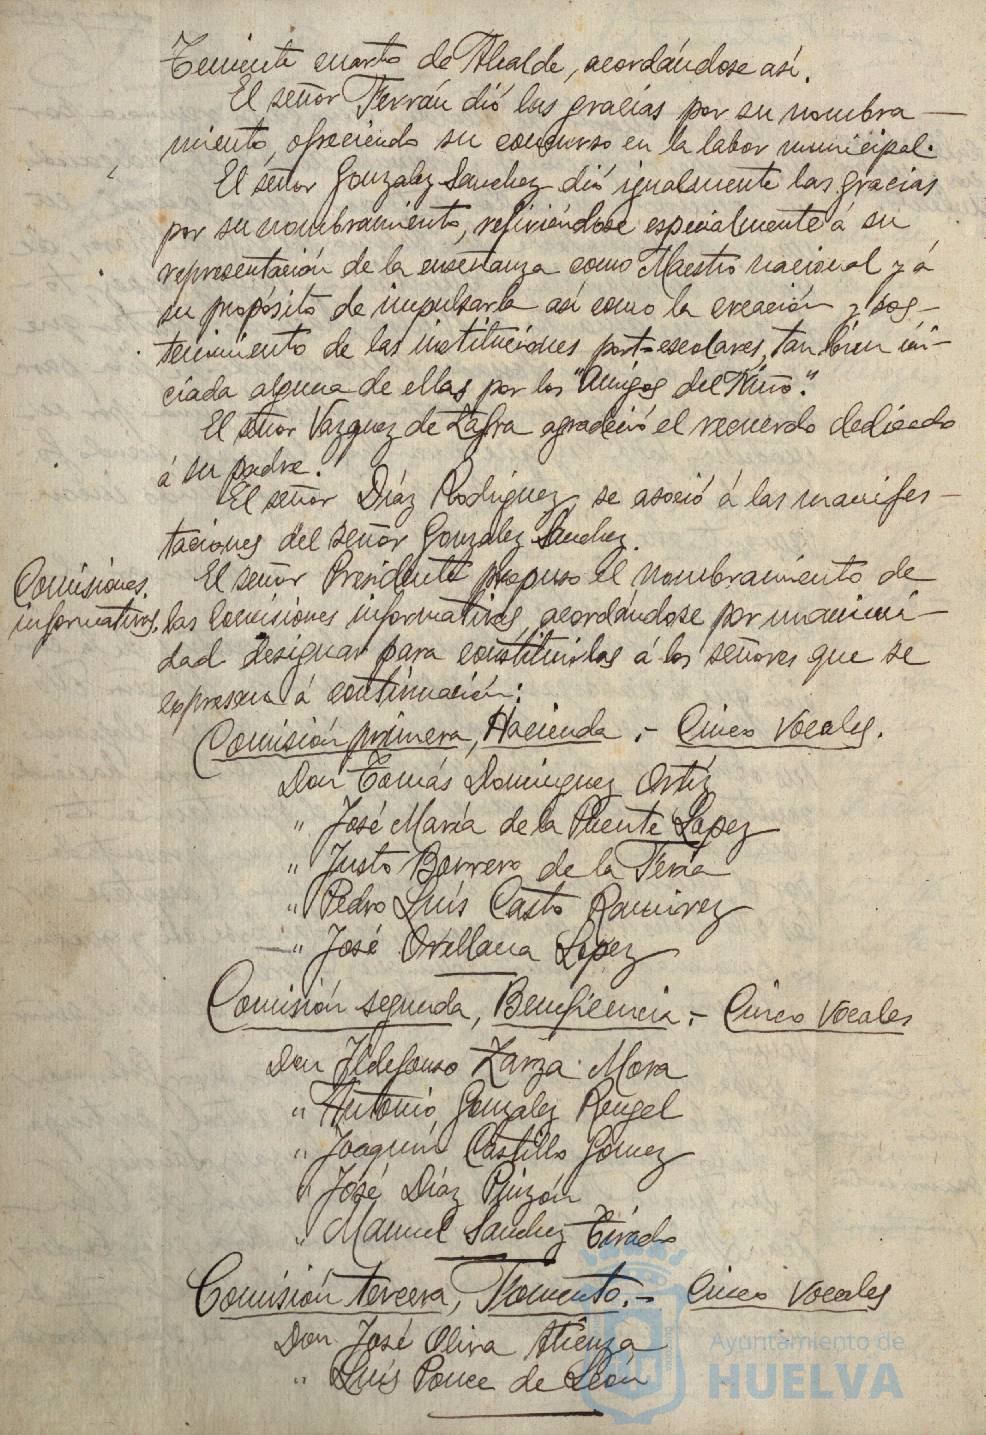 Teniente cuarto de Alcalde, acordándose así.
El señor Terrán dió las gracias por su nombra—
miento, ofreciendo su concurso en la labor municipal.
El señor Gonzalez Sanchez dió igualmente las gracias
por su nombramiento, refiriéndose especialmente á su
representación de la enseñanza como Maestro nacional y á
su propósito de impulsarla así como la creación y sos—
tenimiento de las instituciones post-escolares, tambien ini—
ciada alguna de ellas por los "Amigos del Niño".
El señor Vazquez de Zafra agradeció el recuerdo dedicado
á su padre.
El señor Díaz Rodriguez se asoció á las manifes—
taciones del señor Gonzalez Sanchez.
Comisiones
informativas.
El señor Presidente propuso el nombramiento de
las Comisiones informativas, acordándose por unanimi—
dad designar para constituirlas á los señores que se
expresan á continuación:
Comisión primera, Hacienda.- Cinco Vocales.
Don Tomás Dominguez Ortíz
" José María de la Puente Lopez
" Justo Borrero de la Feria
" Pedro Luís Casto Ramirez
" José Orellana Lopez
Comisión segunda, Beneficencia.- Cinco Vocales
Don Ildefonso Zarza Mora
" Antonio Gonzalez Rengel
" Joaquín Castillo Gomez
" José Díaz Pinzón
" Manuel Sanchez Tirado
Comisión tercera, Fomento.- Cinco Vocales
Don José Oliva Atienza
" Luís Ponce de León
Ayuntamiento de
HUELVA